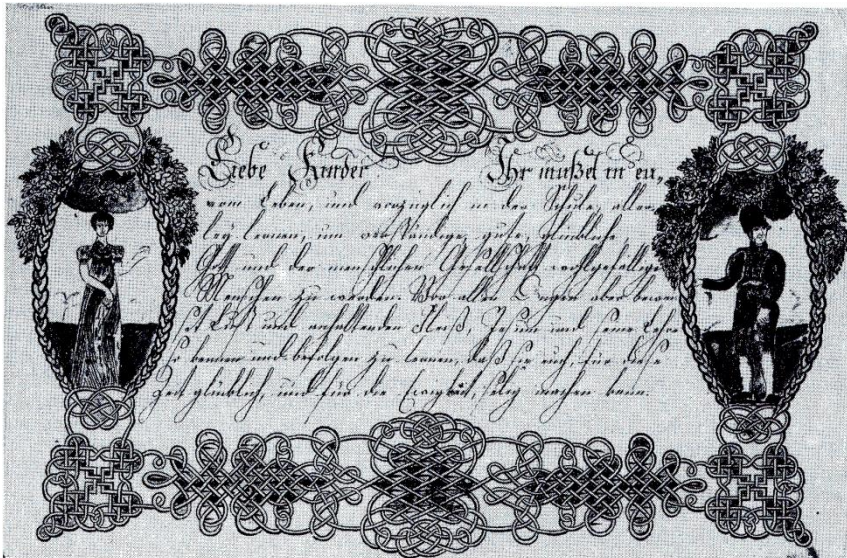 Liebe Kinder Ihr müßet in eu,
rem Leben, und vorzüglich in der Schule, aller,
ley lernen, um verständige, gute, glückliche
Gott und der menschlichen Gesellschaft wohlgefällige
Menschen zu werden. Vor allen Dingen aber bewei
set Lust und anhaltenden Fleiß, Jesum und seine Lehre
so kennen und befolgen zu lernen, daß sie euch, für diese
Zeit glücklich, und für die Ewigkeit, selig machen kann.